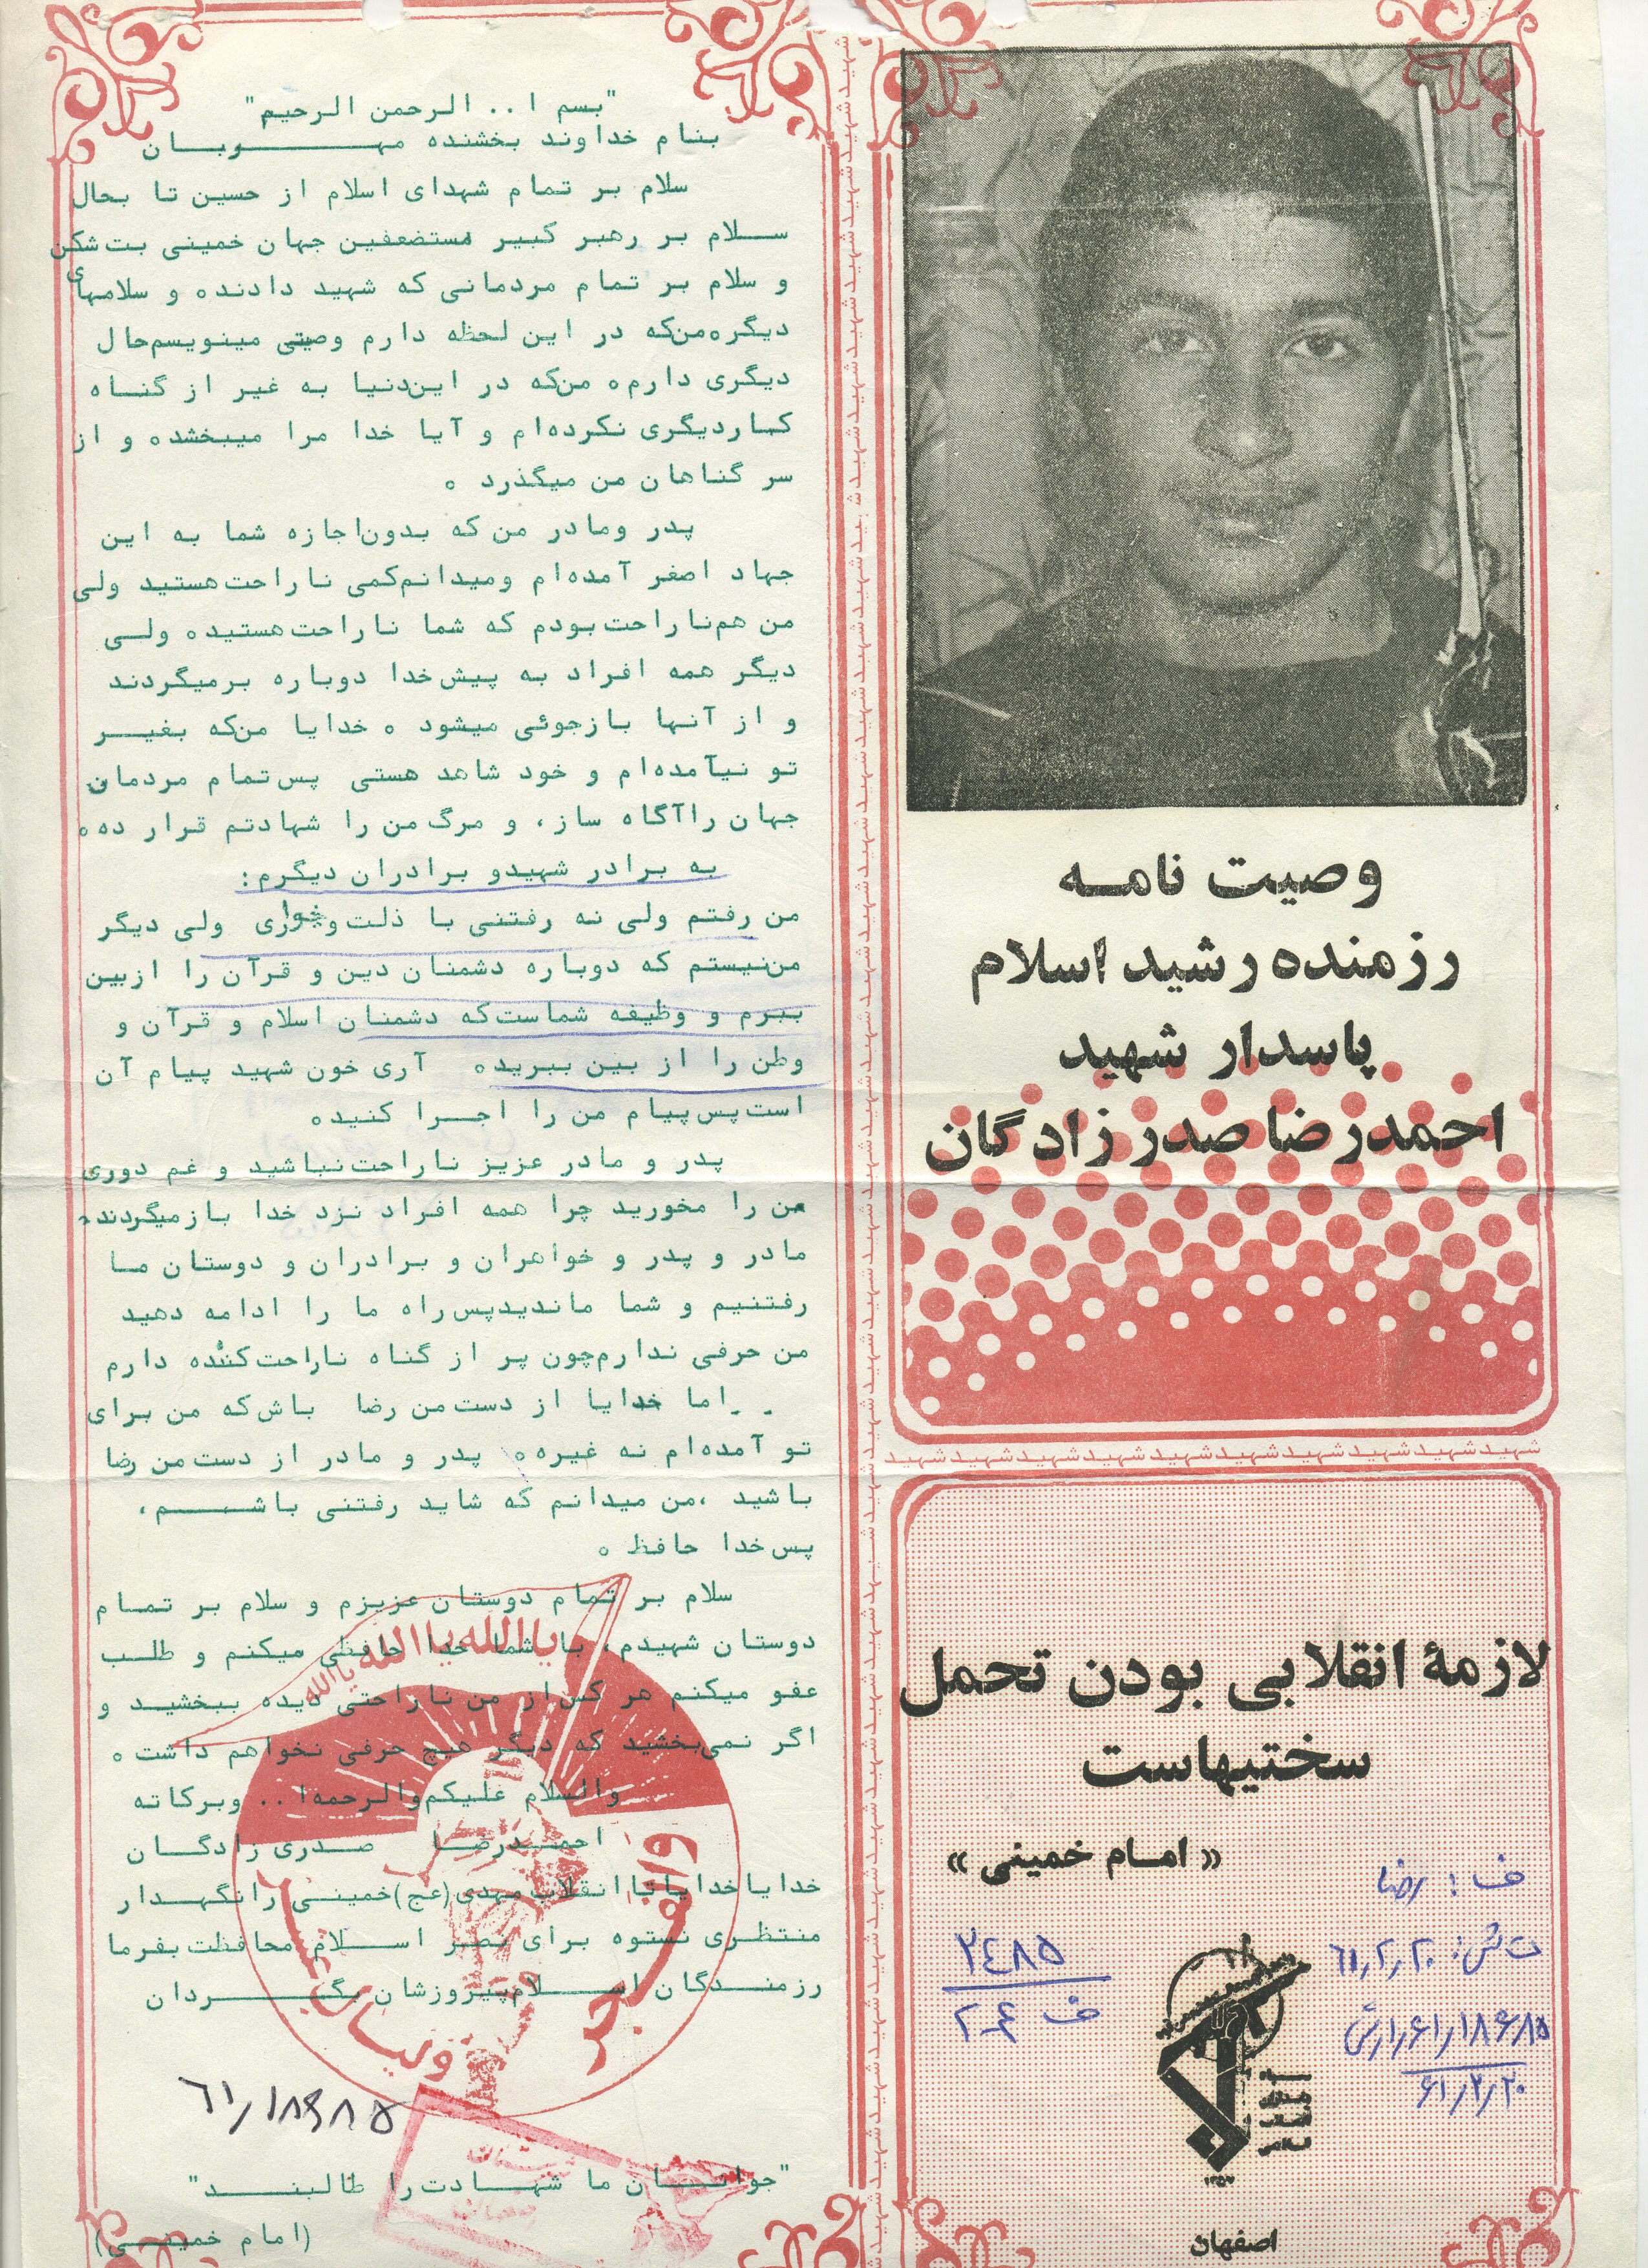 وصیت نامه
رزمنده رشید اسلام
پاسدار شهید
احمدرضا صدرزادگان
"بسم ا.. الرحمن الرحیم"
بنام خداوند بخشنده مهربان
سلام بر تمام شهدای اسلام از حسین تا بحال
سلام بر رهبر کبیر مستضعفین جهان خمینی بت شکن
و سلام بر تمام مردمانی که شهید دادنده و سلامهای
دیگر٥ من‌که در این لحظه دارم وصیتی مینویسم حال
دیگری دارم٥ من‌که در این دنیا به غیر از گناه
کار دیگری نکرده‌ام و آیا خدا مرا میبخشده و از
سر گناهان من میگذرد ٥
پدر ومادر من که بدون اجازه شما به این
جهاد اصغر آمده‌ام و میدانم کمی ناراحت هستید ولی
من هم ناراحت بودم که شما ناراحت هستید٥ ولی
دیگر همه افراد به پیش خدا دوباره برمیگردند
و از آنها بازجوئی میشود ٥ خدایا من‌که بغیر
تو نیآمده‌ام و خود شاهد هستی پس تمام مردمان
جهان را آگاه ساز، و مرگ من را شهادتم قرار ده٥
به برادر شهیدو برادران دیگرم:
من رفتم ولی نه رفتنی با ذلت وخواری ولی دیگر
من نیستم که دوباره دشمنان دین و قرآن را ازبین
ببرم و وظیفه شماست که دشمنان اسلام و قرآن و
وطن را از بین ببرید٥ آری خون شهید پیام آن
است پس پیام من را اجرا کنید٥
پدر و مادر عزیز ناراحت نباشید و غم دوری
من را مخورید چرا همه افراد نزد خدا بازمیگردند٥
مادر و پدر و خواهران و برادران و دوستان ما
رفتنیم و شما ماندید پس راه ما را ادامه دهید
من حرفی ندارم چون پر از گناه ناراحت کننده دارم
.. اما خدایا از دست من رضا باش که من برای
تو آمده‌ام نه غیره٥ پدر و مادر از دست من رضا
باشید ،من میدانم که شاید رفتنی باشم،
پس خدا حافظ ٥
سلام بر تمام دوستان عزیزم و سلام بر تمام
دوستان شهیدم، با شما خدا حافظی میکنم و طلب
عفو میکنم هر کس از من ناراحتی دیده ببخشید و
اگر نمی‌بخشید که دیگر هیچ حرفی نخواهم داشت٥
والسلام علیکم والرحمه‌ا.. وبرکاته
احمدرضا صدری زادگان
خدایا خدایا تا انقلاب مهدی (عج) خمینی را نگهدار
منتظری نستوه برای نصر اسلام محافظت بفرما
رزمندگان اسلام پیروزشان بگردان
یاالله یاالله یاالله
والفجر
ولیال عشر
۶۱/۱۸۶۸۵
"جوانان ما شهادت را طالبند"
(امام خمینی)
شهید شهید شهید شهید شهید شهید شهید شهید شهید شهید
لازمهٔ انقلابی بودن تحمل
سختیهاست
« امام خمینی »
ف : رضا
ت ش: ۶۱٫۲٫۲۰
۲۴۸۵
۶۱٫۲٫۲۰
۱۳۵۷
اصفهان